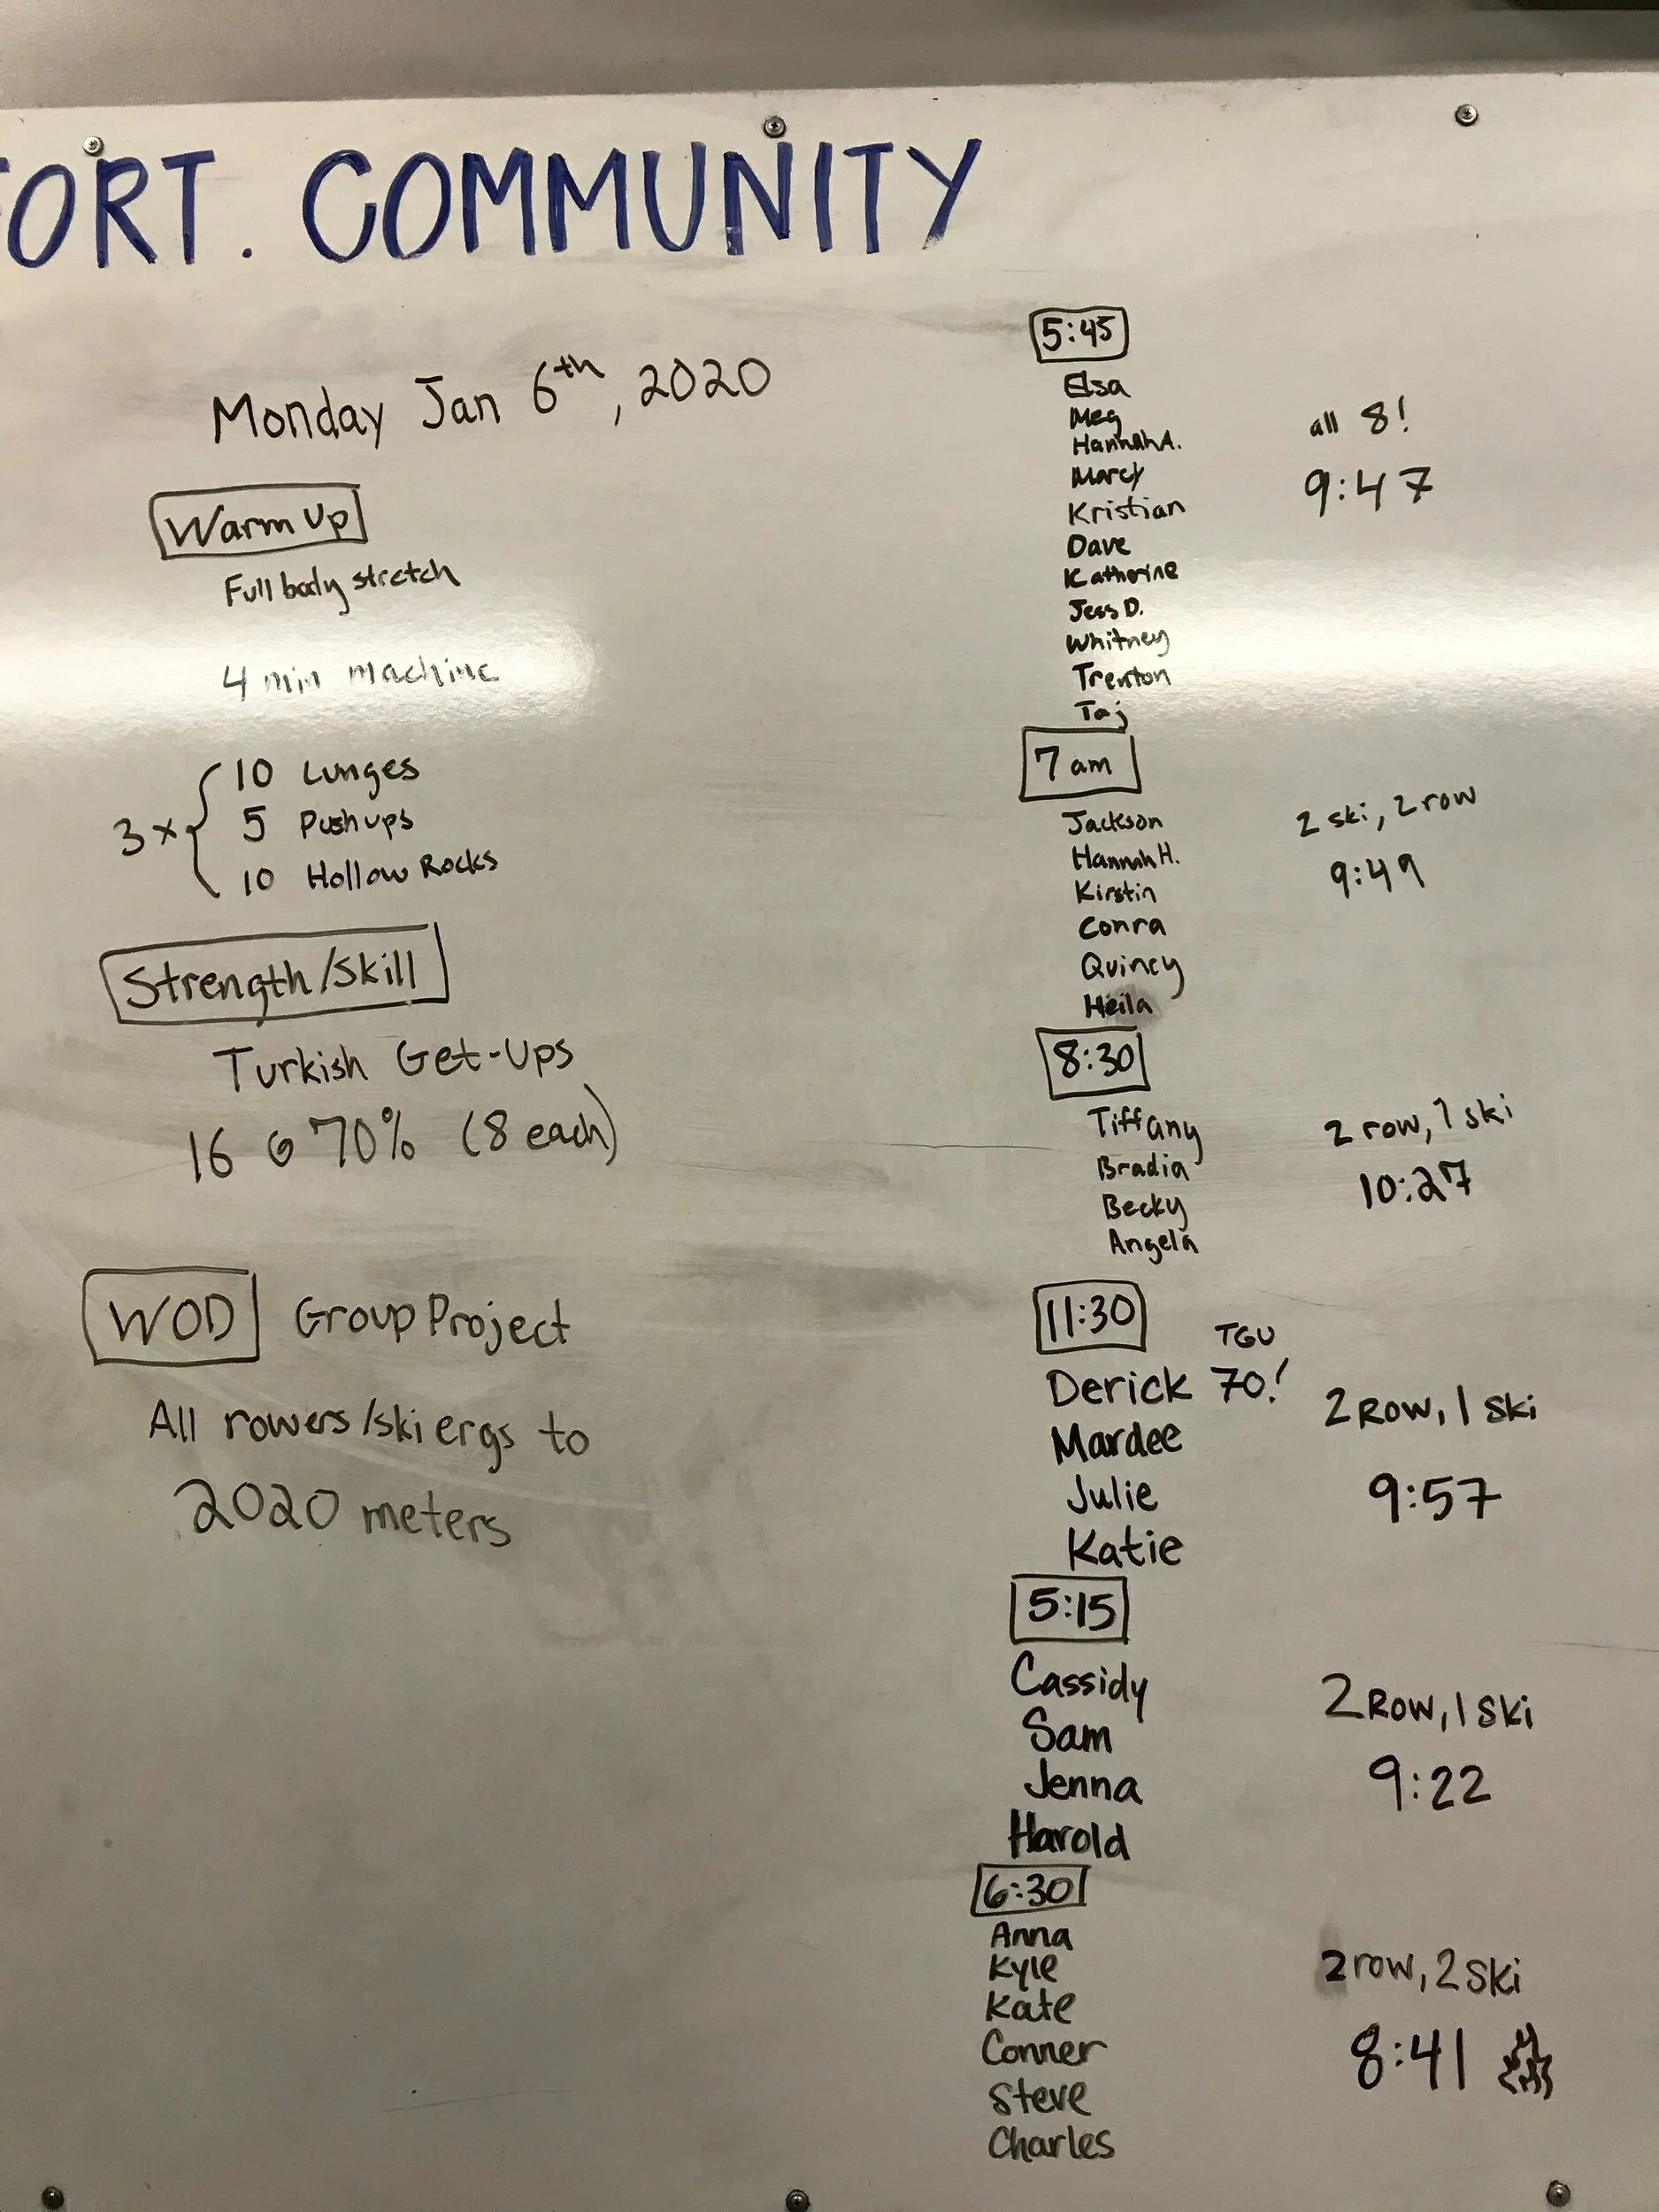 FORT. COMMUNITY
Monday Jan 6th, 2020
Warm Up
Full body stretch
4 min machine
3x
10 Lunges
5 Pushups
10 Hollow Rocks
Strength/Skill
Turkish Get-Ups
16 @ 70% (8 each)
WOD Group Project
All rowers/ski ergs to
2020 meters
5:45
Elsa
Meg
Hannah A.
Marcy
Kristian
Dave
Katherine
Jess D.
Whitney
Trenton
Taj
all 8!
9:47
7 am
Jackson
Hannah H.
Kirstin
Conra
Quincy
Heila
2 ski, 2 row
9:49
8:30
Tiffany
Bradia
Becky
Angela
2 row, 1 ski
10:27
11:30
TGU
Derick 70!
Mardee
Julie
Katie
2 Row, 1 Ski
9:57
5:15
Cassidy
Sam
Jenna
Harold
2 Row, 1 Ski
9:22
6:30
Anna
Kyle
Kate
Conner
Steve
Charles
2 row, 2 Ski
8:41